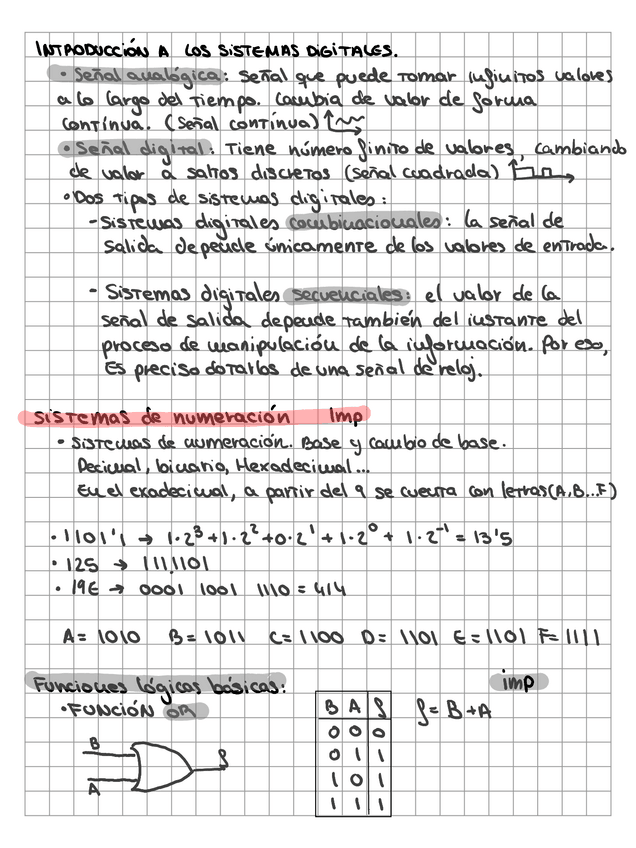 INTRODUCCIÓN A LOS SISTEMAS DIGITALES.
• Señal analógica: señal que puede tomar infinitos valores
a lo largo del tiempo. Cambia de valor de forma
contínua. (señal contínua)
• Señal digital: Tiene número finito de valores, cambiando
de valor a saltos discretos (señal cuadrada)
• Dos tipos de sistemas digitales:
- Sistemas digitales combinacionales: la señal de
salida depende únicamente de los valores de entrada.
- Sistemas digitales secuenciales: el valor de la
señal de salida depende también del instante del
proceso de manipulación de la información. Por eso,
Es preciso dotarlos de una señal de reloj.
Sistemas de numeración Imp
• Sistemas de numeración. Base y cambio de base.
Decimal, binario, Hexadecimal...
En el exadecimal, a partir del 9 se cuenta con letras (A,B...F)
• 1101'1 → 1·2³+1·2²+0·2¹+1·2⁰+1·2⁻¹=13'5
• 125 → 1111101
• 19E → 0001 1001 1110 = 414
A= 1010 B= 1011 C= 1100 D= 1101 E= 1101 F= 1111
Funciones lógicas básicas: imp
• FUNCIÓN OR
B A f
0 0 0
0 1 1
1 0 1
1 1 1
f= B+A
B
A
f